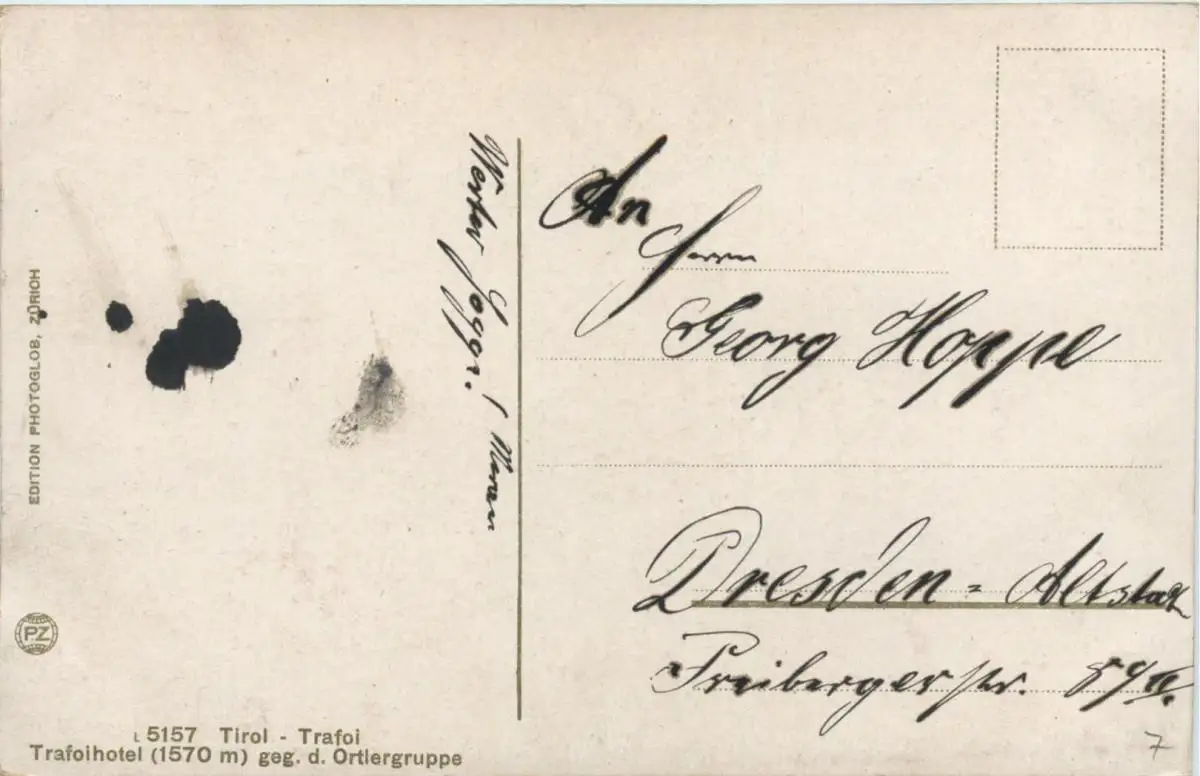 Werter
An
Herrn
Georg Hoppe
Dresden = Altstadt
Freibergerstr. 89 II.
EDITION PHOTOGLOB, ZÜRICH
PZ
5157 Tirol - Trafoi
Trafoihotel (1570 m) geg. d. Ortlergruppe
7